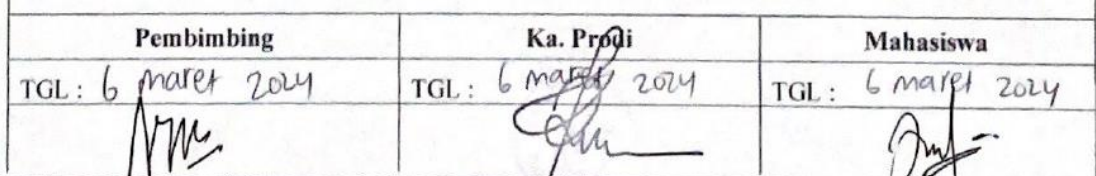 Pembimbing Ka. Prodi Mahasiswa
TGL : 6 maret 2024 TGL : 6 maret 2024 TGL : 6 maret 2024